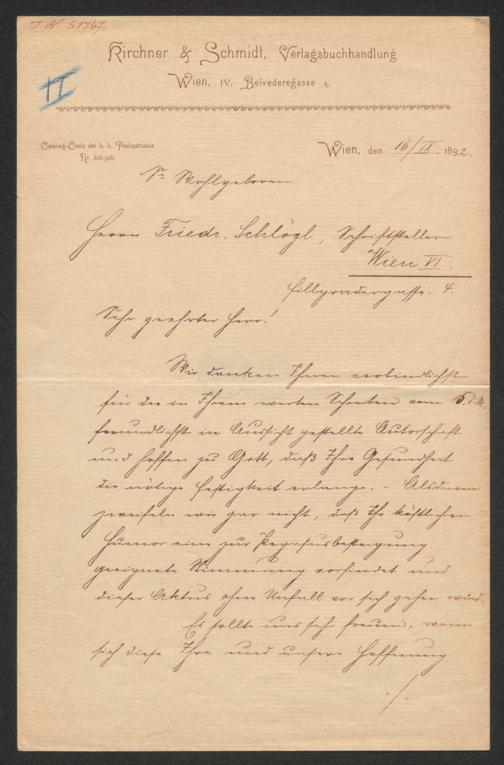 I. N. 51767
II
Kirchner & Schmidt, Verlagsbuchhandlung
Wien, IV. Belvederegasse 4.
Clearing-Conto der k. k. Postsparcasse
Wien, den 16/IX. 1892.
Sr Wohlgeboren
Herrn Friedr. Schlögl, Schriftsteller
Wien VI.
Fillgradergasse. 4.
Sehr geehrter Herr!
Wir danken Ihnen verbindlichst
für die in Ihrem werten Schreiben vom 15. d. M.
freundlichst in Aussicht gestellte Autorschaft
und hoffen zu Gott, daß Ihre Gesundheit
die nötige Festigkeit erlange. – Alsdann
zweifeln wir gar nicht, daß Ihr köstlicher
Humor eine zur Pegasusbesteigung
geeignete Stimmung vorfindet und
dieser Aktus ohne Unfall vor sich gehen wird.
Es sollte uns sehr freuen, wenn
sich diese Ihre und unsere Hoffnung
./.